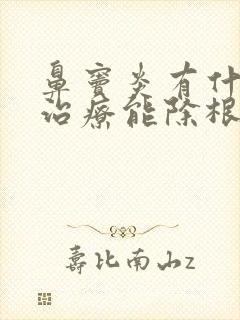 鼻窦炎有什
治疗能除根
寿比南山z